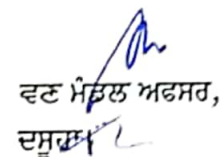 ਵਣ ਮੰਡਲ ਅਫਸਰ,
ਦਸੂਹਾ।